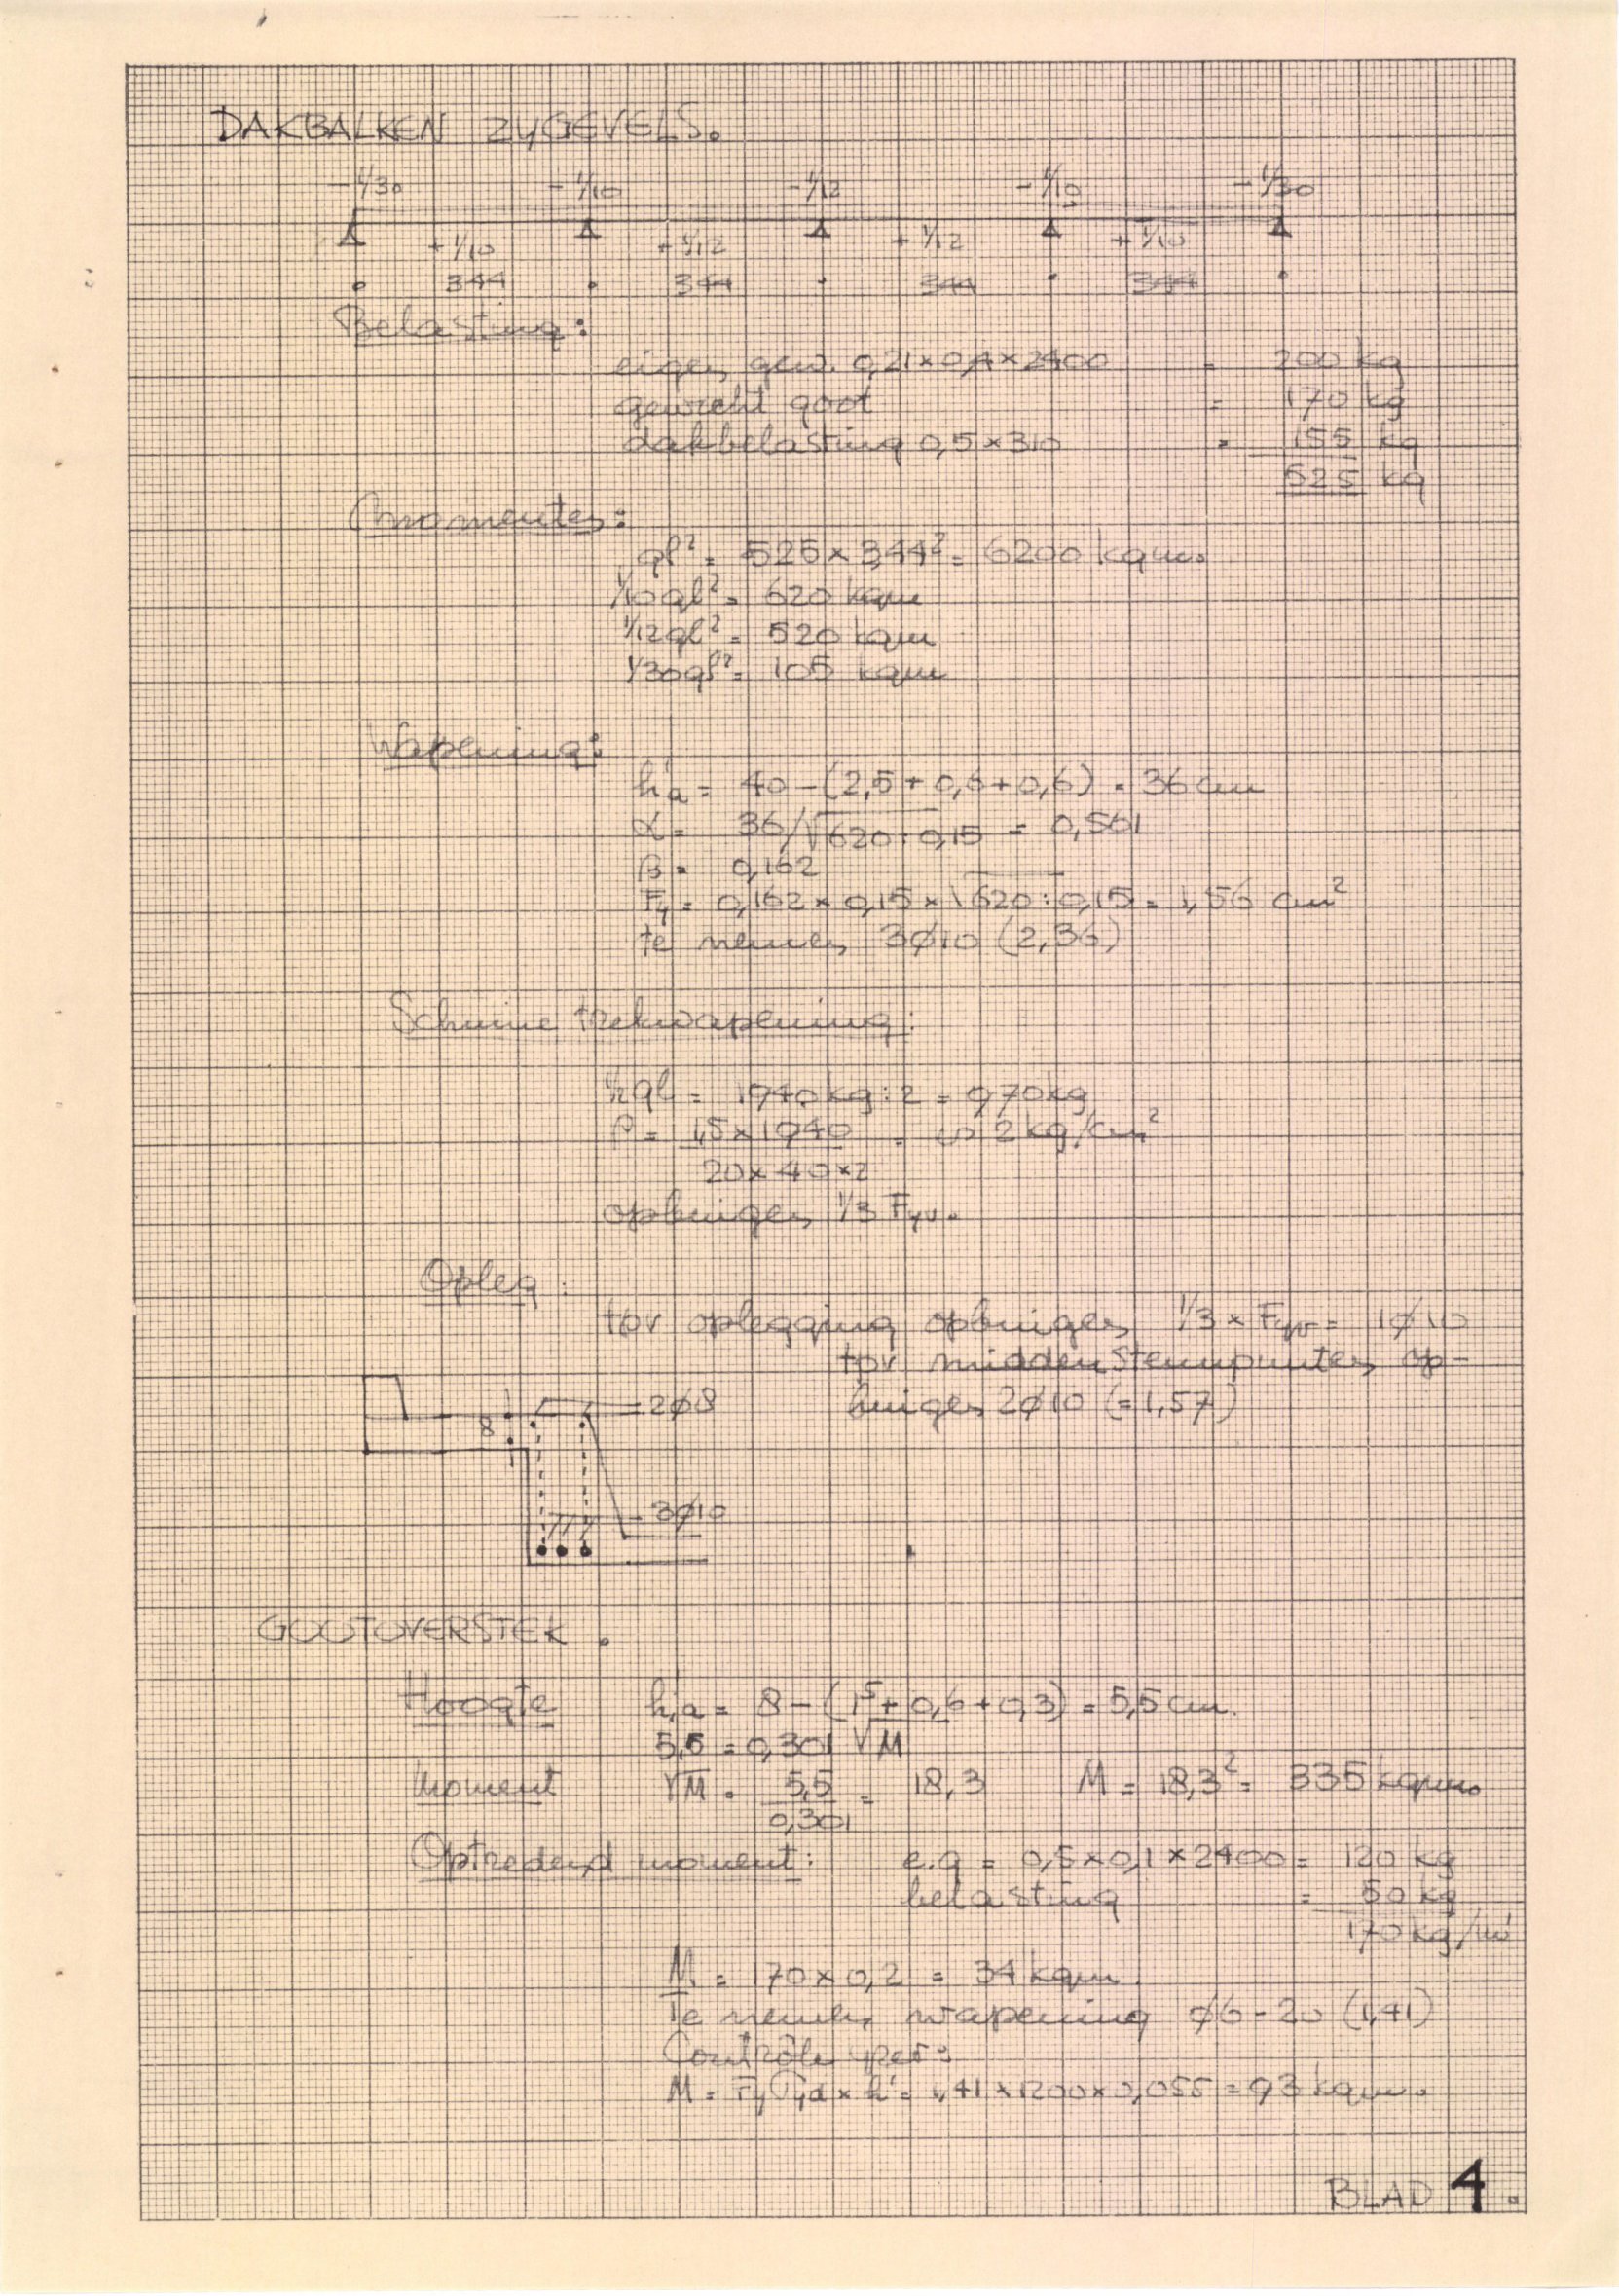 DAKBALKEN ZYGEVELS.
-1/30 -1/10 -1/12 -1/10 -1/30
+1/10 +1/12 +1/12 +1/10
344 344 344 344
Belasting:
eigen gew. 0,21×0,4×2400 = 200 kg
gewicht goot = 170 kg
dakbelasting 0,5×310 = 155 kg
525 kg
Momenten:
ql² = 525×3,44² = 6200 kgm.
1/10 ql² = 620 kgm
1/12 ql² = 520 kgm
1/30 ql² = 105 kgm
Wapening:
ha = 40-(2,5+0,6+0,6) = 36 cm
α = 36/√620:0,15 = 0,561
β = 0,162
Fy = 0,162×0,15×√620:0,15 = 1,56 cm²
te nemen 3ø10 (2,36)
Schuine trekwapening:
½ql = 1940 kg:2 = 970 kg
ρ = 1,5×1940 = ∾ 2 kg/cm²
20×40×2
opbuigen 1/3 Fyv.
Opleg:
tpv oplegging opbuigen 1/3 × Fyv = 1ø10
tpv middensteunpunten op-
buigen 2ø10 (=1,57)
2ø8
8
3ø10
GOOTOVERSTEK.
Hoogte ha = 8-(1⁵+0,6+0,3) = 5,5 cm.
5,5 = 0,301 √M
Moment √M = 5,5 = 18,3 M = 18,3² = 335 kgm.
0,301
Optredend moment: e.g = 0,5×0,1×2400 = 120 kg
belasting = 50 kg
170 kg/m'
M = 170×0,2 = 34 kgm.
Te nemen wapening ø6-20 (1,41)
Contrôle yzer:
M = Fy σyd × h' = 1,41×1200×0,055 = 93 kgm.
BLAD 4.